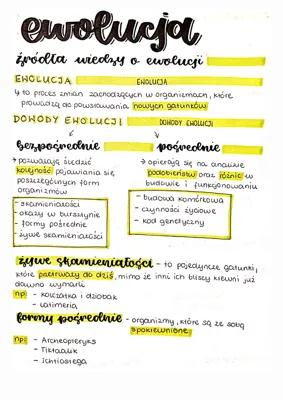 ewolucja
źródła wiedzy o ewolucji
EWOLUCJA EWOLUCJA
↳ to proces zmian zachodzących w organizmach, które
prowadzą do powstawania nowych gatunków
DOWODY EWOLUCJI DOWODY EWOLUCJI
bezpośrednie
→ pozwalają śledzić
kolejność pojawiania się
poszczególnych form
organizmów
- skamieniałości
- okazy w bursztynie
- formy pośrednie
- żywe skamieniałości
pośrednie
→ opierają się na analizie
podobieństw oraz różnic w
budowie i funkcjonowaniu
- budowa komórkowa
- czynności życiowe
- kod genetyczny
żywe skamieniałości - to pojedyncze gatunki,
które przetrwały do dziś, mimo że inni ich bliscy krewni już
dawno wymarli
np - kolczatka i dziobak
- latimeria
formy pośrednie - organizmy, które są ze sobą
spokrewnione
np: - Archeopteryks
- Tiktaalik
- Ichtiostega